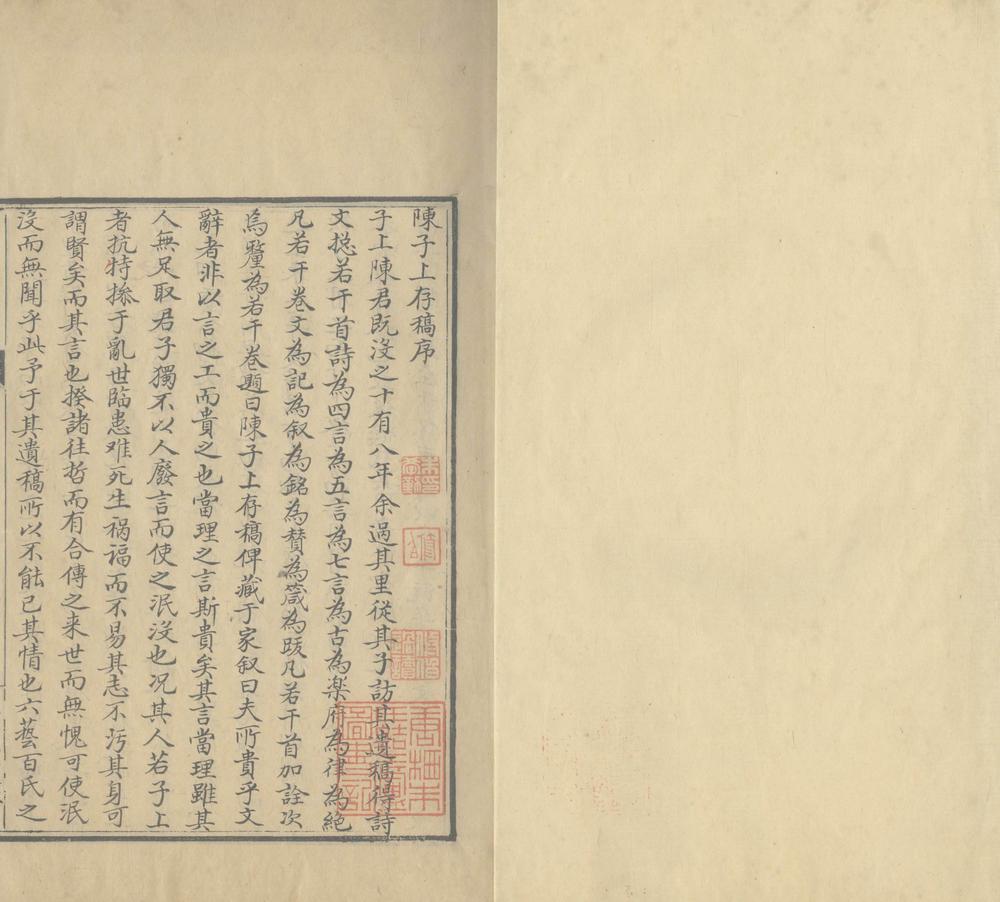 陳子上存稿序
子上陳君既沒之十有八年余過其里從其子訪其遺稿得詩
文捴若干首詩為四言為五言為七言為古為樂府為律為絕
凡若干卷文為記為叙為銘為賛為箴為跋凡若干首加詮次
焉釐為若干卷題曰陳子上存稿俾藏于家叙曰夫所貴乎文
辭者非以言之工而貴之也當理之言斯貴矣其言當理雖其
人無足取君子獨不以人廢言而使之泯沒也况其人若子上
者抗特摻于亂世臨患难死生禍福而不易其志不汚其身可
謂賢矣而其言也揆諸往哲而有合傳之来世而無愧可使泯
沒而無聞乎此予于其遺稿所以不能已其情也六藝百氏之